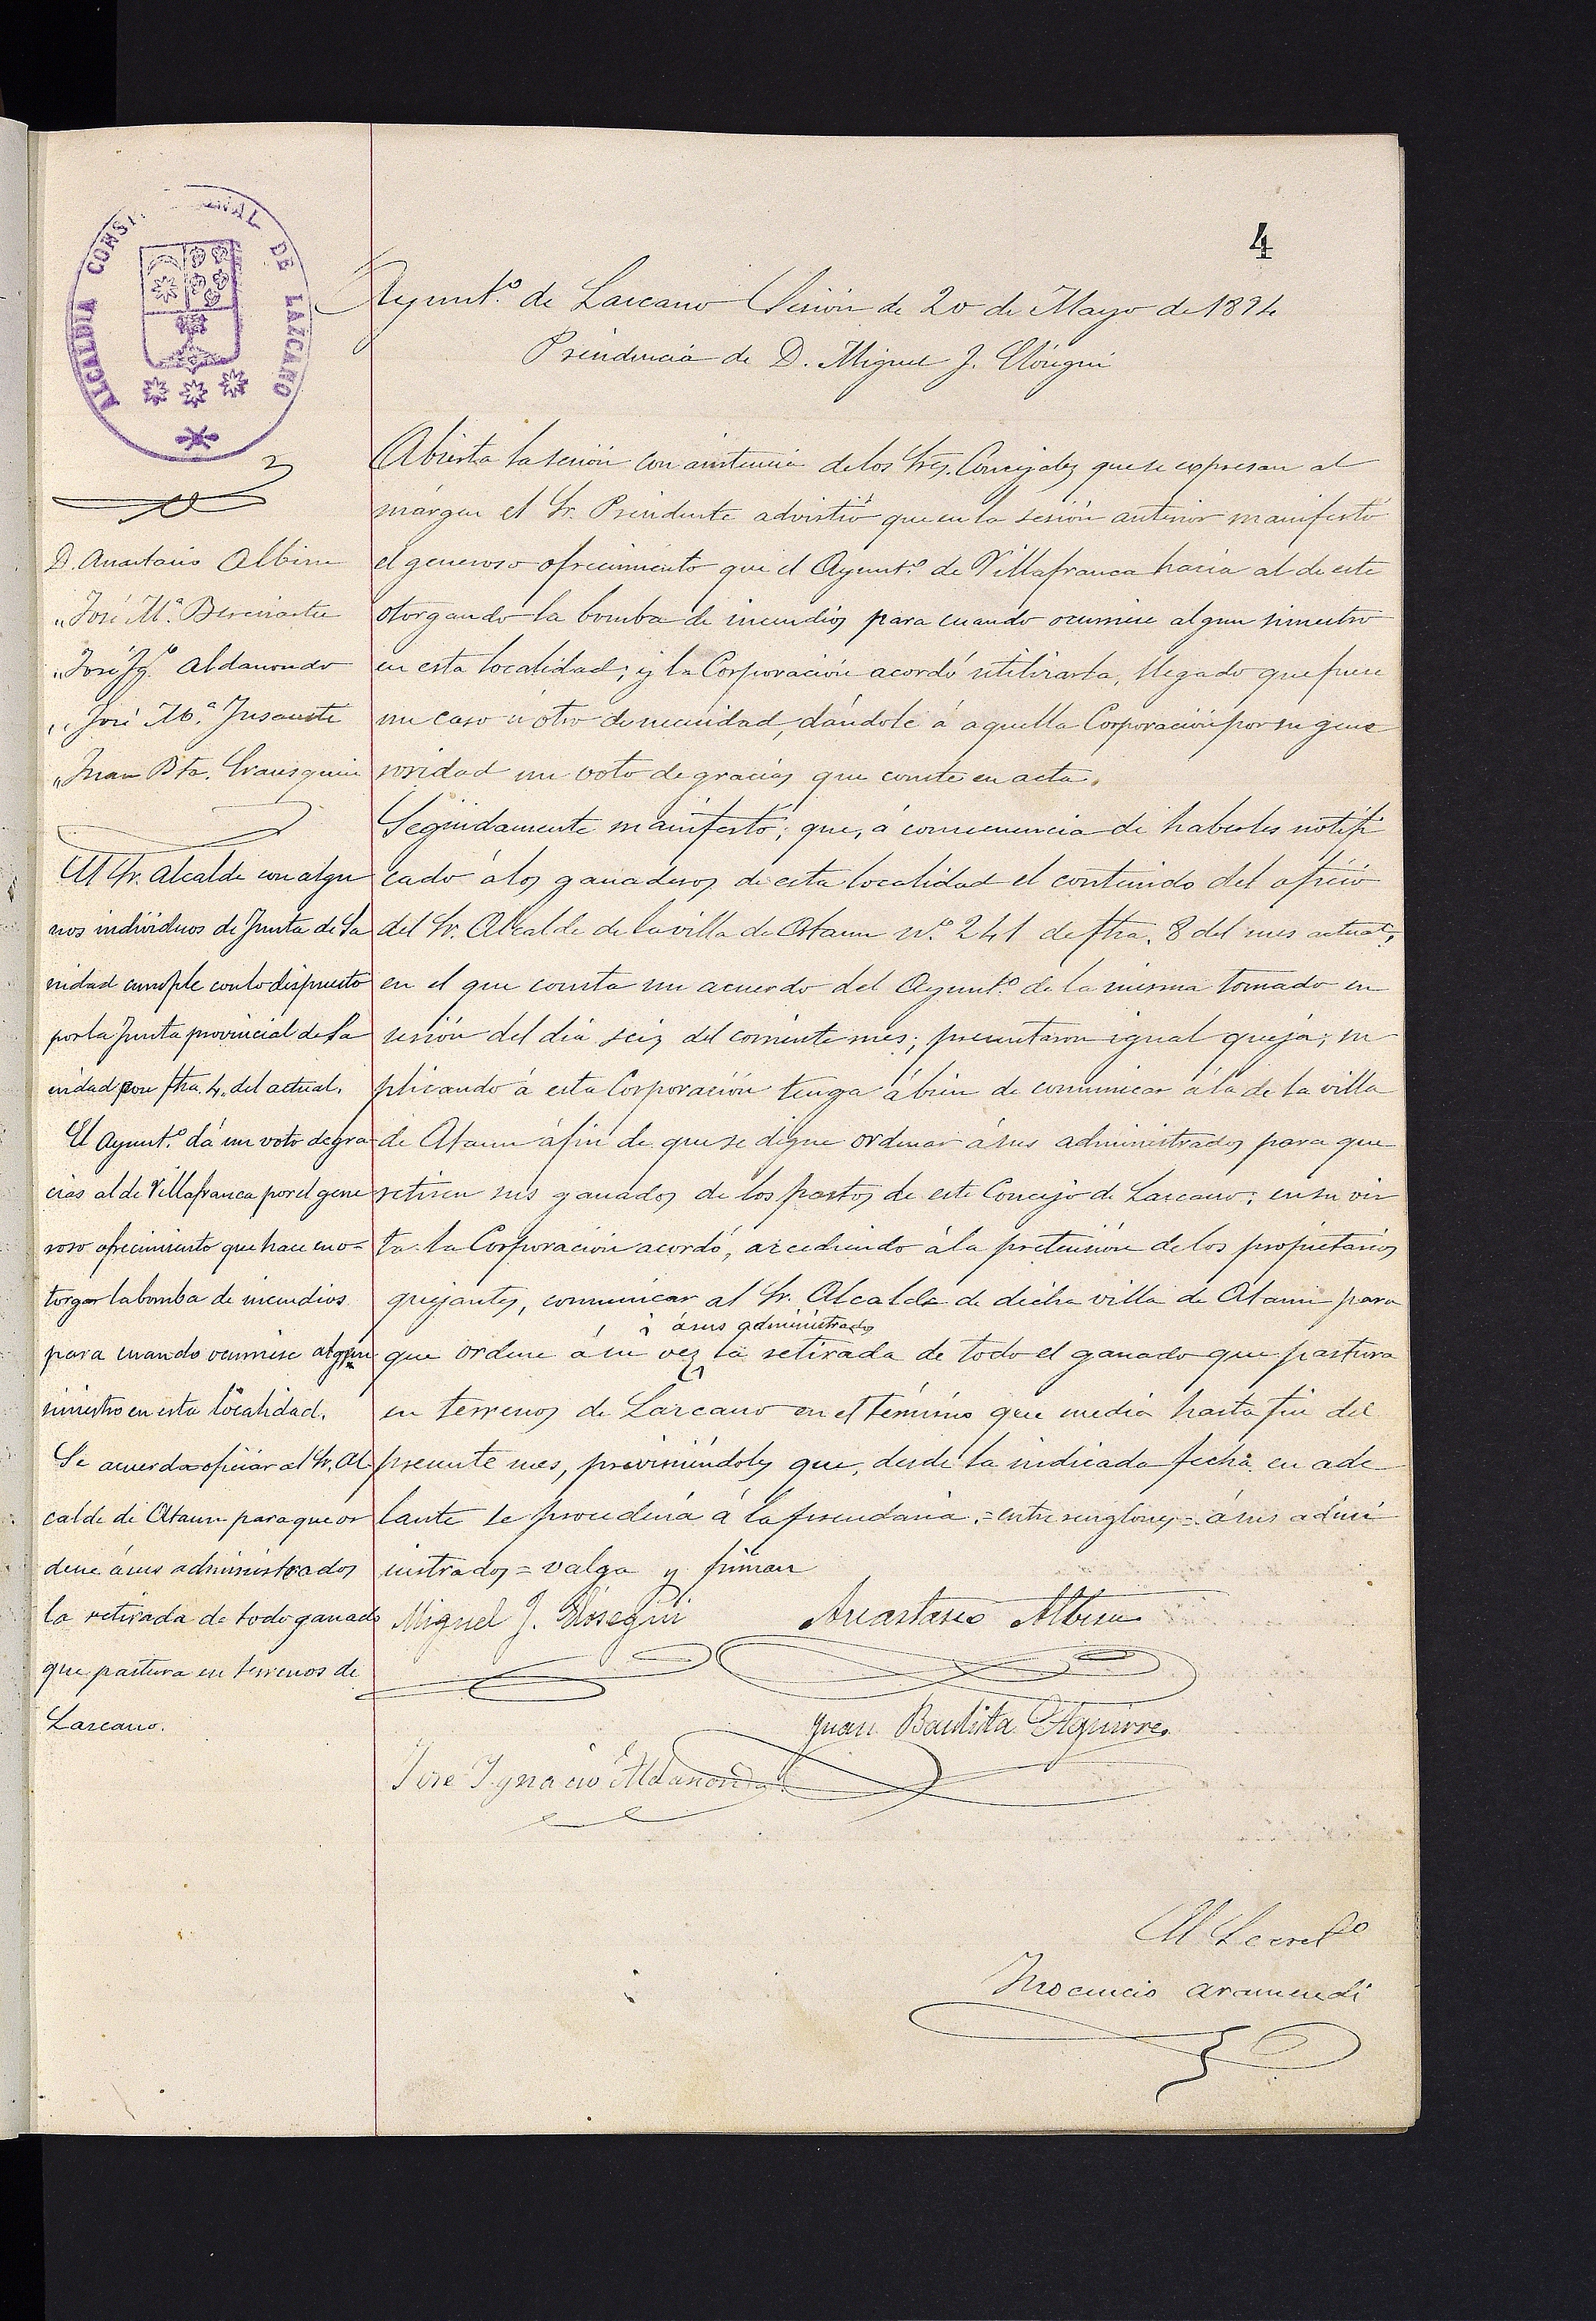 4
ALCALDIA CONSTI NAL DE LAZCANO
Ayunt.º de Lazcano Sesión de 20 de Mayo de 1894
Presidencia de D. Miguel J. Elósegui
D. Anastasio Albisu
„ José M.ª Bereciartu
„ José Ig.º Aldanondo
„ José M.ª Insausti
„ Juan Bta. Irausquin
El Sr. Alcalde con algu
nos individuos de Junta de Sa
nidad cumple con lo dispuesto
por la Junta provincial de Sa
nidad con fha. 4. del actual.
El Ayunt.º dá un voto de gra
cias al de Villafranca por el gene
roso ofrecimiento que hace en o-
torgar la bomba de incendios
para cuando ocurriese algun
siniestro en esta localidad.
Se acuerda oficiar al Sr. Al
calde de Ataun para que or
dene á sus administrados
la retirada de todo ganado
que pastura en terrenos de
Lazcano.
Abierta la sesión con asistencia de los Sres. Concejales que se expresan al
márgen el Sr. Presidente advirtió que en la sesión anterior manifestó
el generoso ofrecimiento que el Ayunt.º de Villafranca hacía al de este
otorgando la bomba de incendios para cuando ocurriese algun siniestro
en esta localidad; y la Corporación acordó utilizarla, llegado que fuese
un caso ú otro de necesidad, dándole á aquella Corporación por su gene
rosidad un voto de gracias que conste en acta.
Seguidamente manifestó; que, á consecuencia de haberles notifi
cado á los ganaderos de esta localidad el contenido del oficio
del Sr. Alcalde de la villa de Ataun N.º 241 de fha. 8 del mes actual,
en el que consta un acuerdo del Ayunt.º de la misma tomado en
sesión del dia seis del corriente mes; presentaron igual queja; su
plicando á esta Corporación tenga á bien de comunicar á la de la villa
de Ataun á fin de que se digne ordenar á sus administrados para que
retiren sus ganados de los pastos de este Concejo de Lazcano; en su vir
tu la Corporación acordó, accediendo á la pretensión de los propietarios
quejantes, comunicar al Sr. Alcalde de dicha villa de Ataun para
á sus administrados
que ordene á su vez la retirada de todo el ganado que pastura
en terrenos de Lazcano en el término que media hasta fin del
presente mes, previniéndoles que, desde la indicada fecha en ade
lante se procederá á la prendaria. = entre renglones = á sus admi
nistrados = valga y firman
Miguel J. Elósegui Anastasio Albisu
Juan Bautista Aguirre
José Ygnacio Aldanondo
El Secret.º
Inocencio Aramendi